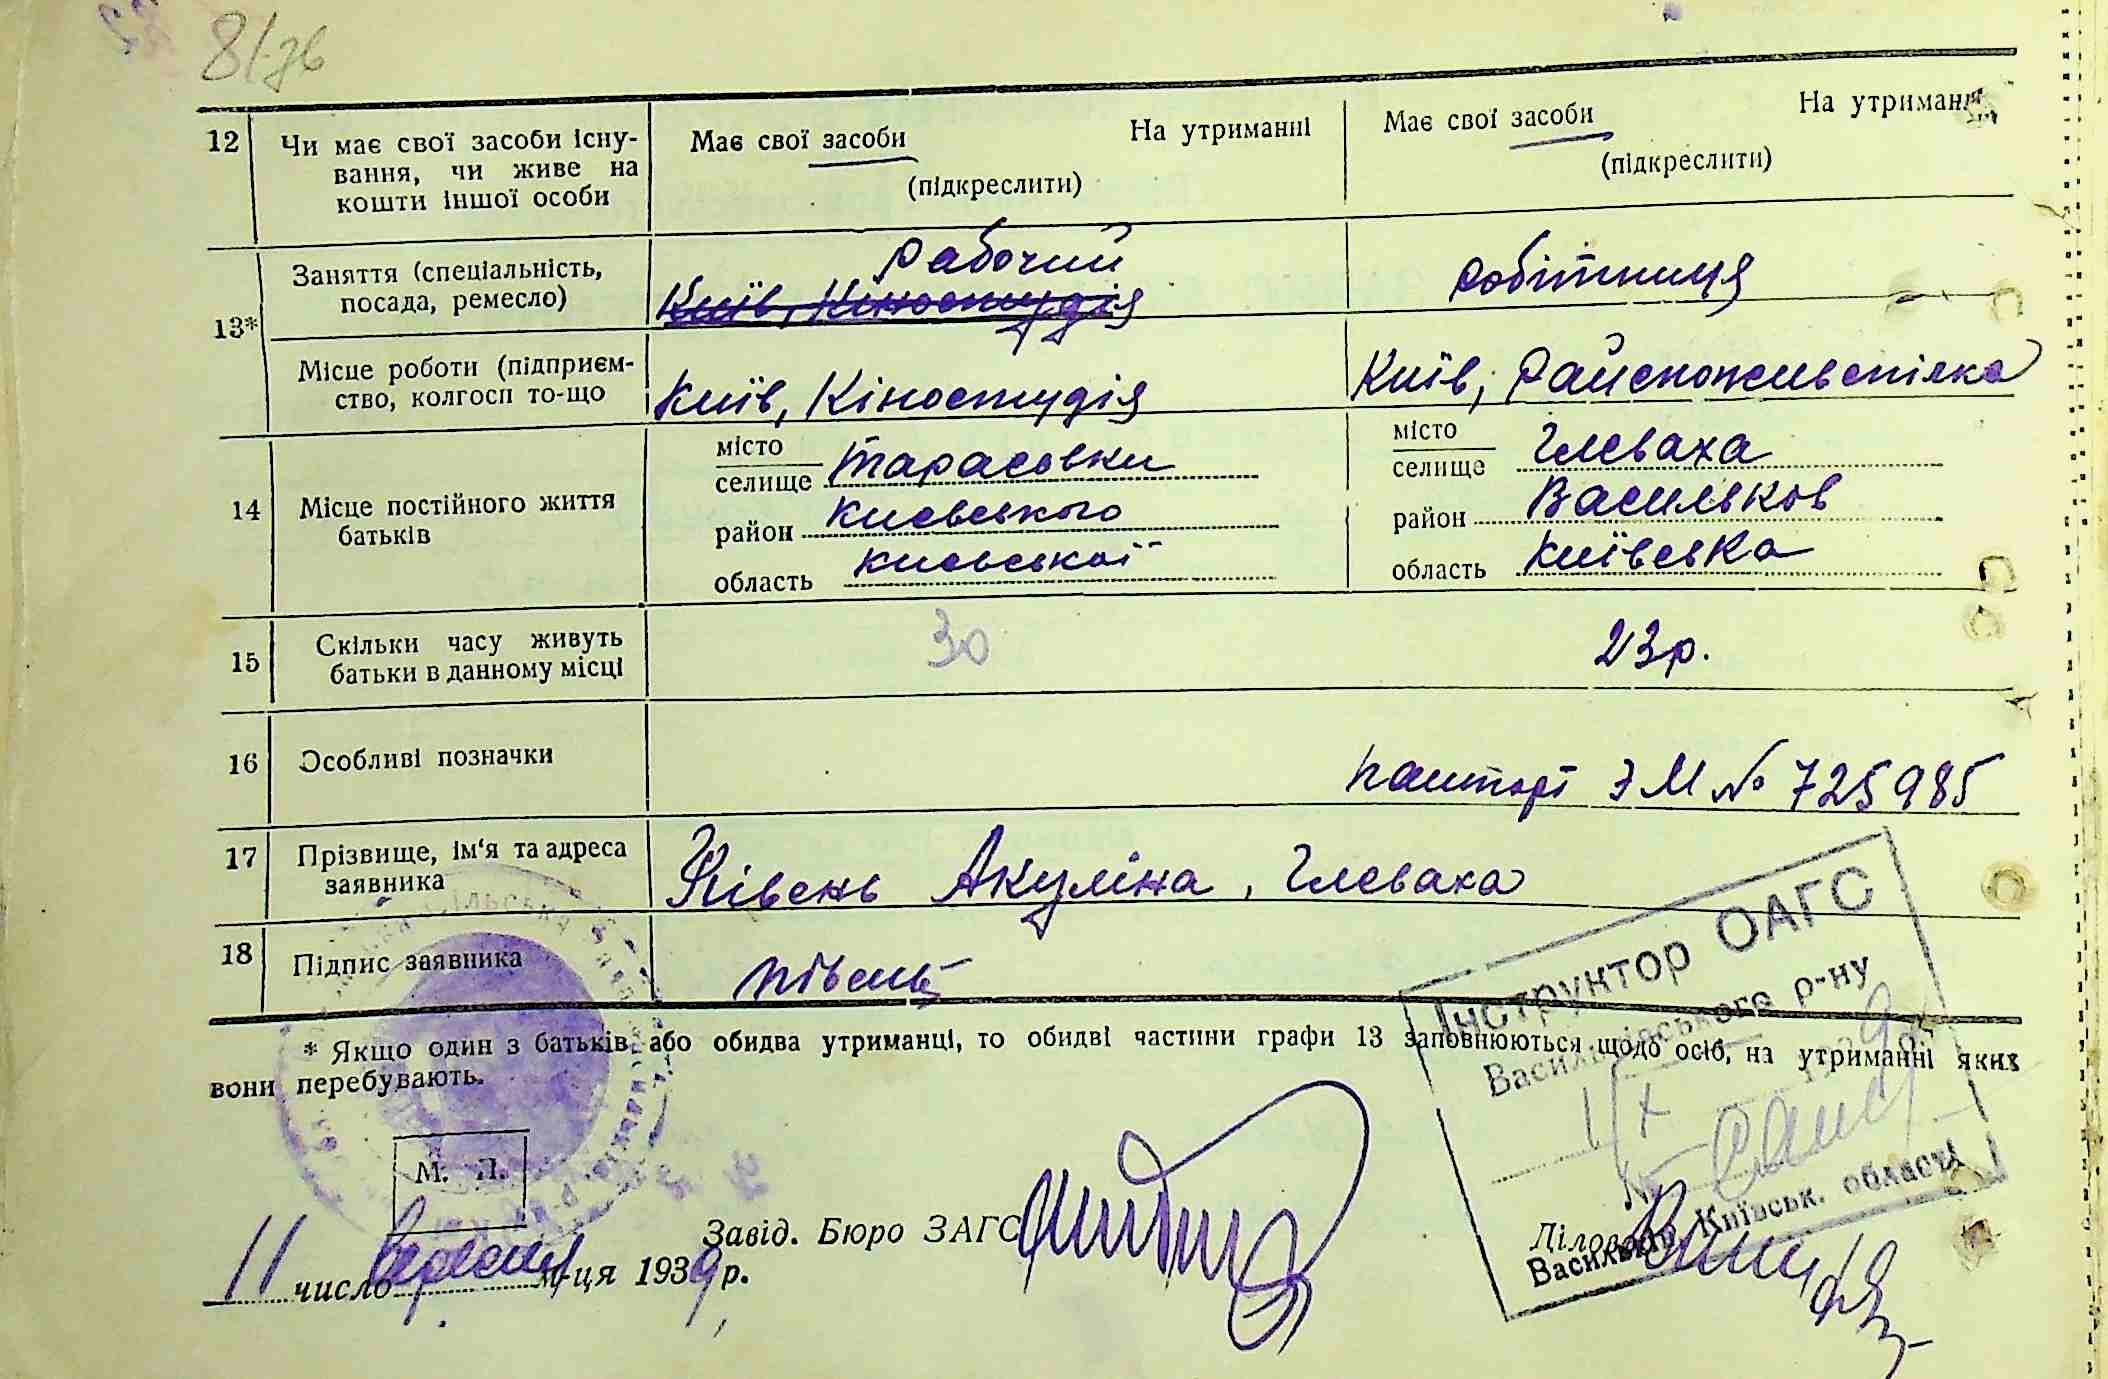 8/зв
12 Чи має свої засоби існу-
вання, чи живе на
кошти іншої особи
Має свої засоби На утриманні
(підкреслити)
Має свої засоби На утриманні
(підкреслити)
13*
Заняття (спеціальність,
посада, ремесло)
рабочий
Київ, Кіностудія
робітниця
Місце роботи (підприєм-
ство, колгосп то-що
Київ, Кіностудія
Київ, Райспоживспілка
14 Місце постійного життя
батьків
місто
селище Тарасовки
район Киевського
область Киевської
місто
селище Глеваха
район Васильков
область Київська
15 Скільки часу живуть
батьки в данному місці
30
23 р.
16 Особливі позначки
паспорт ЭМ № 725985
17 Прізвище, ім‘я та адреса
заявника
Півень Акуліна, Глеваха
18 Підпис заявника
Півень
* Якщо один з батьків або обидва утриманці, то обидві частини графи 13 заповнюються щодо осіб, на утриманні яких
вони перебувають.
Інструктор ОАГС
Васильківського р-ну
№
Васильків, Київськ. області
М. П.
11 число вересня м-ця 1939 р.
Завід. Бюро ЗАГС
Діловод